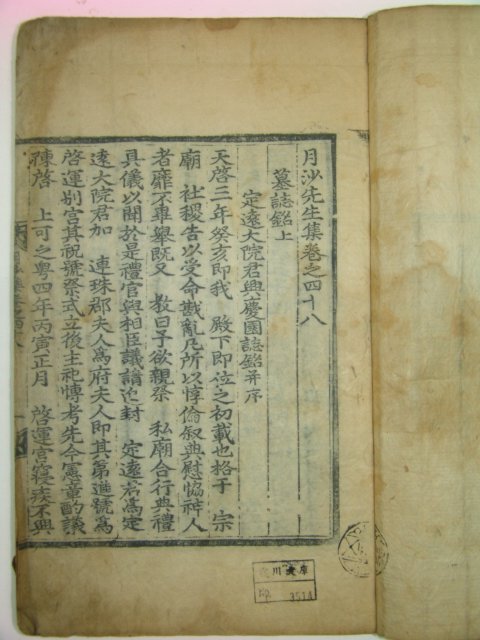 月沙先生集卷之四十八
墓誌銘上
定遠大院君興慶園誌銘并序
天啓三年癸亥即我 殿下即位之初載也格于 宗
廟 社稷告以受命戡亂凡所以惇倫敍典慰恊神人
者靡不畢舉既又 教曰予欲親祭 私廟合行典禮
具儀以聞於是禮官與相臣議請追封 定遠君爲定
遠大院君加 連珠郡夫人爲府夫人即其第進號爲
啓運別宮其祝號祭式立後主祀博考先令憲章酌議
陳啓 上可之粤四年丙寅正月 啓運宮寢疾不興
川文庫
3514